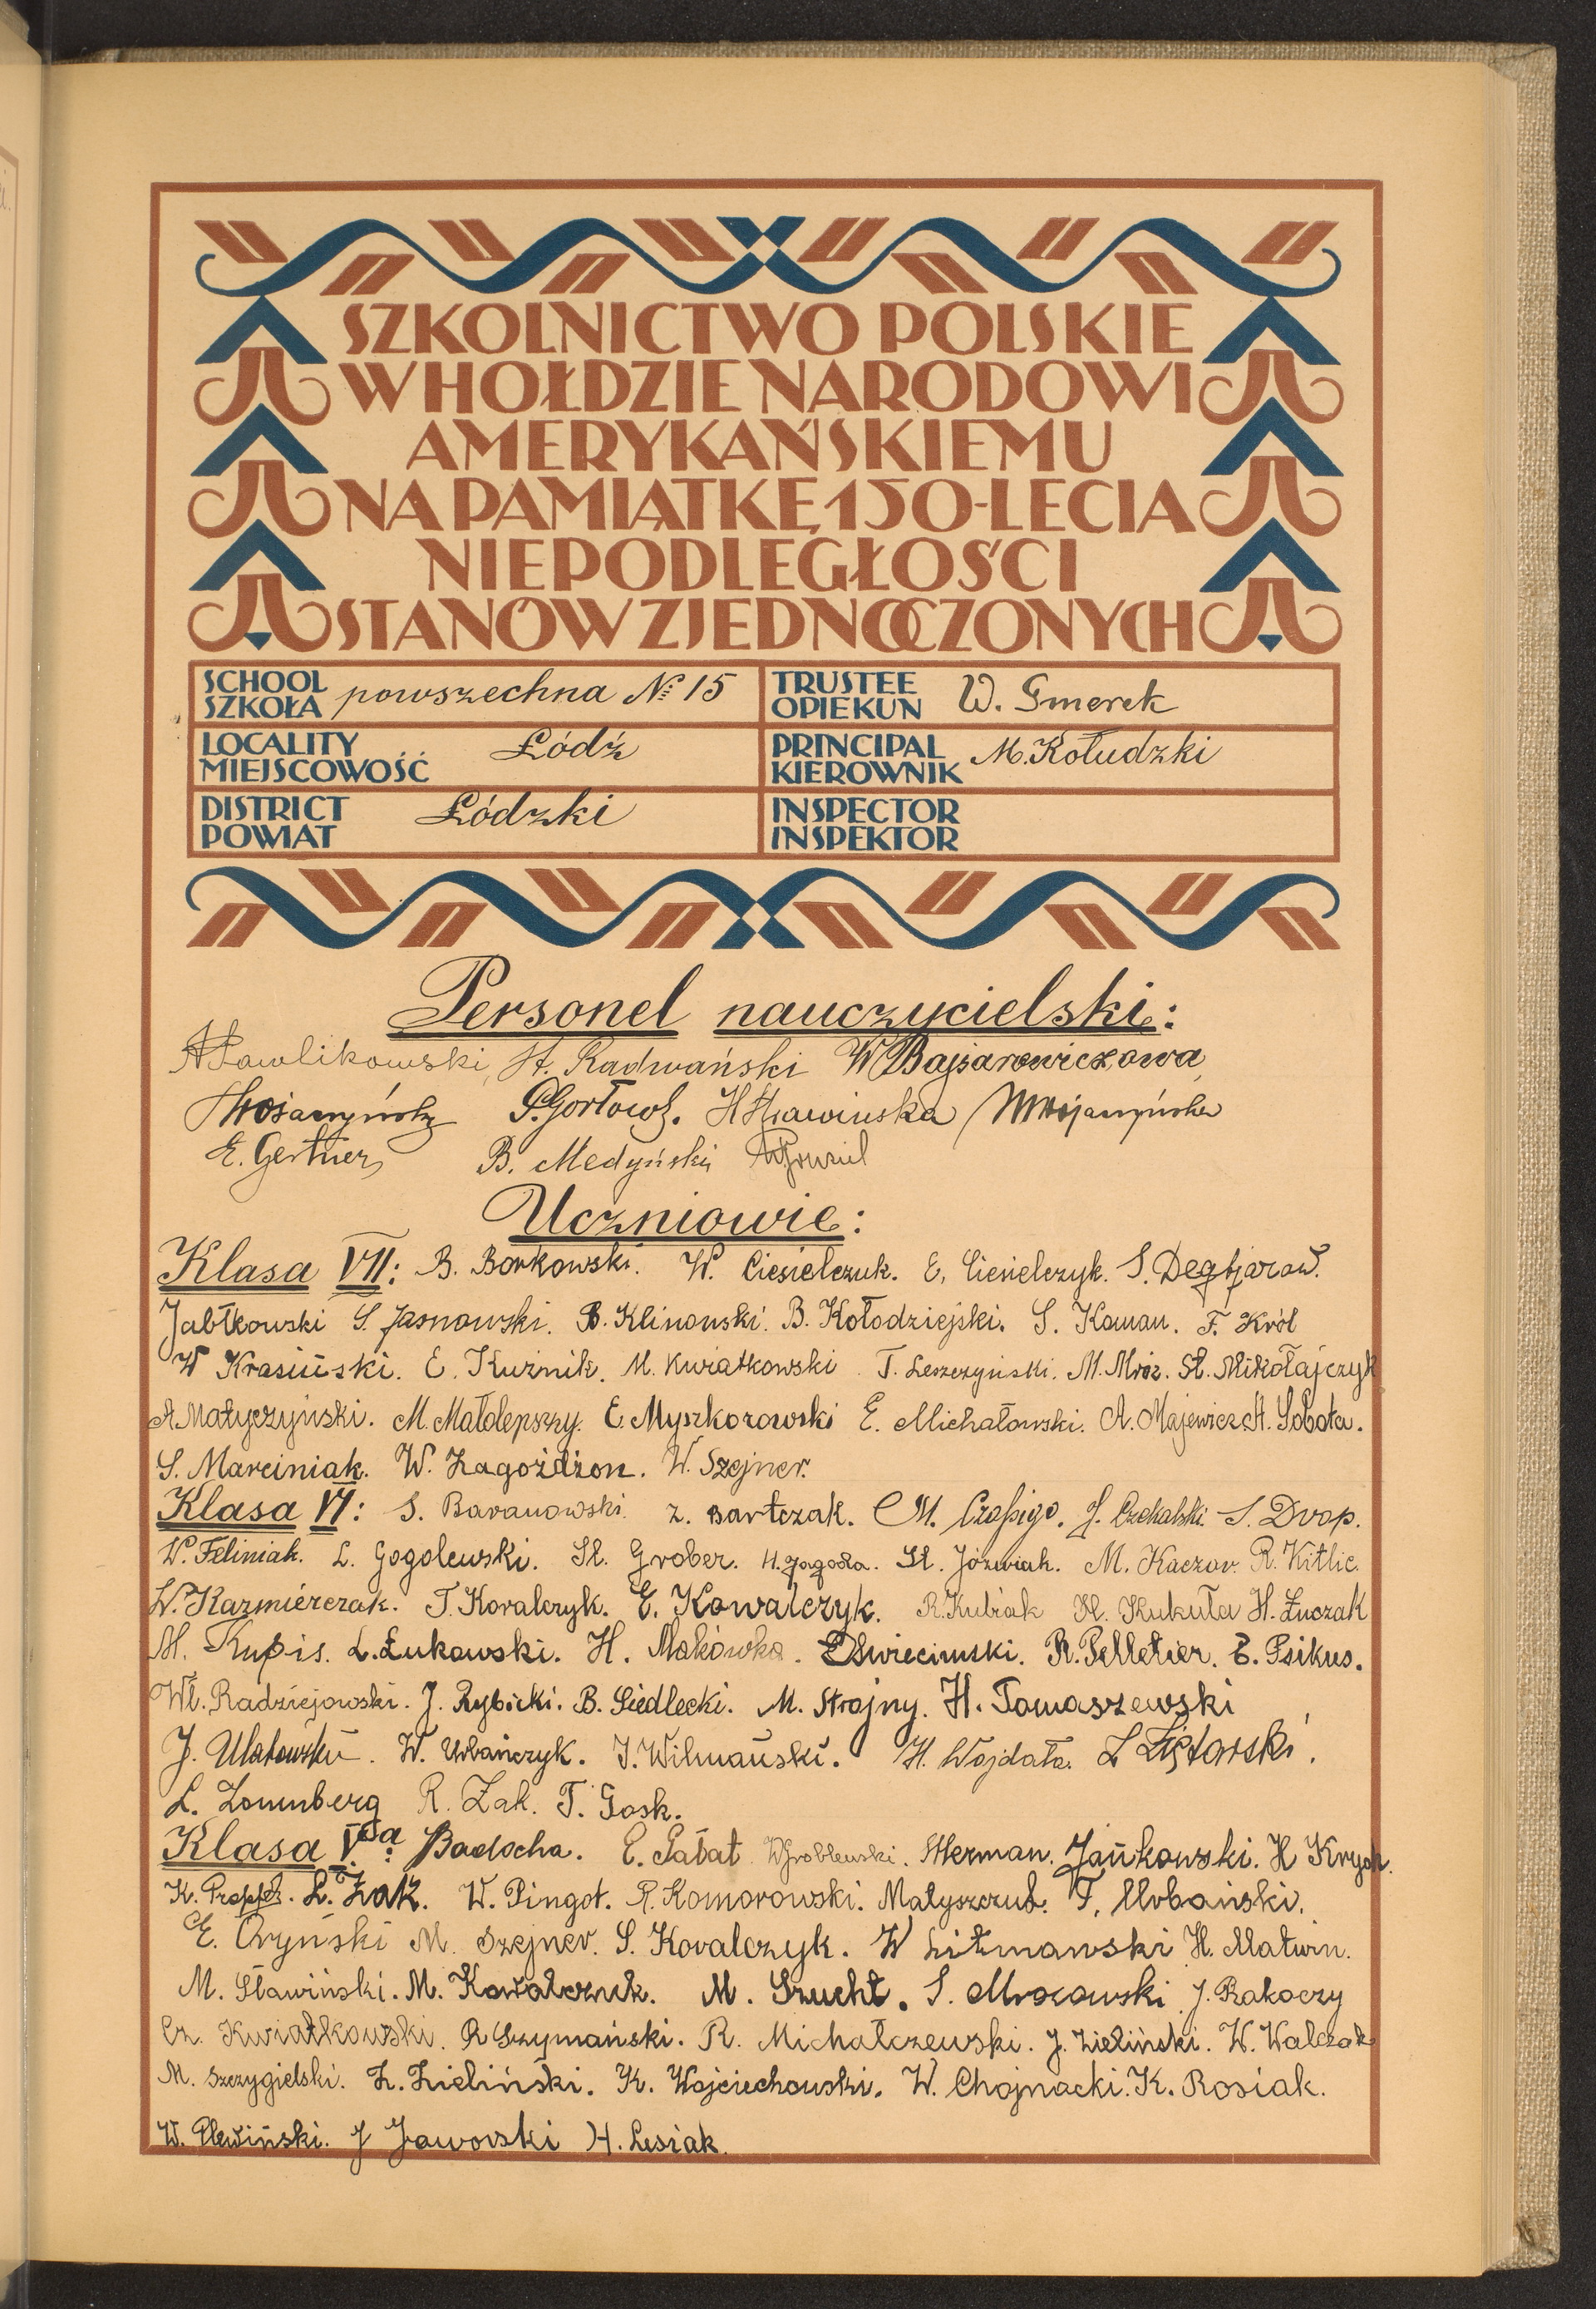 SZKOLNICTWO POLSKIE
W HOŁDZIE NARODOWI
AMERYKAŃSKIEMU
NA PAMIĄTKĘ 150-LECIA
NIEPODLEGŁOŚCI
STANÓW ZJEDNOCZONYCH
SCHOOL
SZKOŁA powszechna № 15
TRUSTEE
OPIEKUN W. Gmerek
LOCALITY
MIEJSCOWOŚĆ Łódź
PRINCIPAL
KIEROWNIK M. Kołudzki
DISTRICT
POWIAT Łódzki
INSPECTOR
INSPEKTOR
Personel nauczycielski:
St. Radwański W Bajsarowiczowa
E. Gertner B. Medyński
Uczniowie:
Klasa VII: B. Borkowski. W. Ciesielczuk. E. Ciesielczyk. S. Degtjarow.
Jabłkowski S. Jasnowski. B. Klinowski. B. Kołodziejski. S. Koman. F. Król
W Krasiński. E. Kuźnik. M. Kwiatkowski T. Leszczyński. M. Mróz. St. Mikołajczyk
A. Matyczyński. M. Małolepszy. E. Myszkorowski E. Michałowski. A. Majewicz. St. Sobota.
S. Marciniak. W. Zagożdżon. W. Szejner.
Klasa VI: S. Baranowski. Z. Bartczak. M. J. Czekalski. S. Drop.
W. Feliniak. L. Gogolewski. St. Grober. H. Jagoda. St. Jóźwiak. M. Kaczor. R. Kitlic.
W. Kazmierczak. T. Kovalczyk. E. Kowalczyk. R. Kubiak H. Kukuła H. Łuczak
M. Kupis. L. Łukawski. H. Makówka. Świecimski. R. Pelletier. E. Psikus.
Wł. Radziejowski. J. Rybicki. B. Siedlecki. M. Strojny. H. Tomaszewski
J. Ulatowski. W. Urbańczyk. J. Wilmański. H. Wojdała. L Ziętarski.
L. Zomnberg R. Żak. T. Gosk.
Klasa Vta: Badocha. E. Gabat W Groblewski. Herman. Jańkowski. H Krych.
K. Propfe. L. Żak. W. Pingot. R. Komorowski. Matyszczuk. T. Urbański.
E. Oryński M. Szejner. S. Kovalczyk. W Litmanowski H. Matwin.
M. Sławiński. M. Kowalczuk. M. Szucht. S. Mrozowski J. Rakoczy
Cz. Kwiatkowski. R Szymański. R. Michalczewski. J. Zieliński. W. Walczak
M. Szczygielski. Z. Zieliński. K. Wojciechowski. W. Chojnacki. K. Rosiak.
W. Plewiński. J Jaworski H. Lesiak.